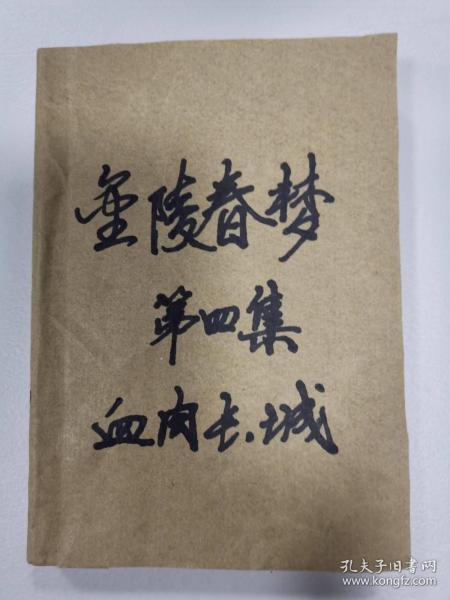 金陵春梦
第四集
血肉长城
孔夫子旧书网
www.kongfz.com